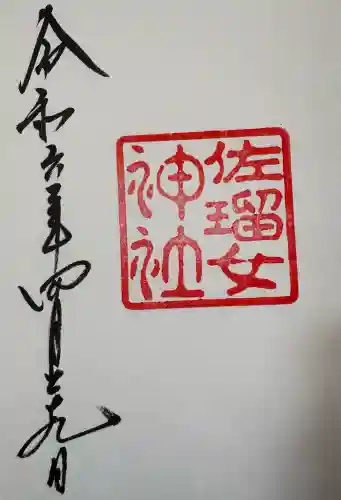 佐瑠女
神社
令和六年四月十九日